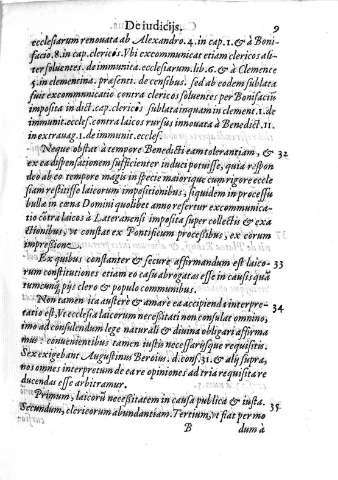 De iudicijs. 9
ecclesiarum renouata ab Alexandro.4. in cap.1. & à Boni-
facio.8. in cap. clericos. Vbi excommunicat etiam clericos ali-
ter soluentes. de immunita. ecclesiarum. lib.6. & à Clemente
5. in clementina. præsenti. de censibus. sed ab eodem sublata
fuit excommunicatio contra clericos soluentes per Bonifaciũ
imposita in dict. cap. clericos sublata inquam in clement.1. de
immunit. ecclesi. contra laicos rursus innouata à Benedict.11.
in extrauag.1. de immunit. ecclesi.
Neque obstat à tempore Benedicti eam tolerantiam, & 32
ex ea dispensationem sufficienter induci potuisse, quia respon
deo ab eo tempore magis in specie maiorique cum rigore eccle
siam restitisse laicorum impositionibus, siquidem in processu
bulla in cœna Domini quolibet anno refertur excommunica-
tio cõtra laicos à Lateranensi imposita super collectis & exa
ctionibus, vt constat ex Pontificum processibus, ex eorum
impressione.
Ex quibus constanter & secure affirmandum est laico- 33
rum constitutiones etiam eo casu abrogatas esse in causis quã
tumcunq; pijs clero & populo communibus.
Non tamen ita austere & amare ea accipienda interpre- 34
tatio est, Vt ecclesia laicorum necessitati non consulat omnino,
imo ad consulendum lege naturali & diuina obligari affirma
mus: conuenientibus tamen iustis necessarijsque requisitis.
Sex exigebant Augustinus Beroius. d. cons.31. & alij supra,
nos omnes interpretum de ea re opiniones ad tria requisita re
ducendas esse arbitramur.
Primum, laicorũ necessitatem in causa publica & iusta. 35
Secundum, clericorum abundantiam. Tertium, vt fiat per mo
B dum à